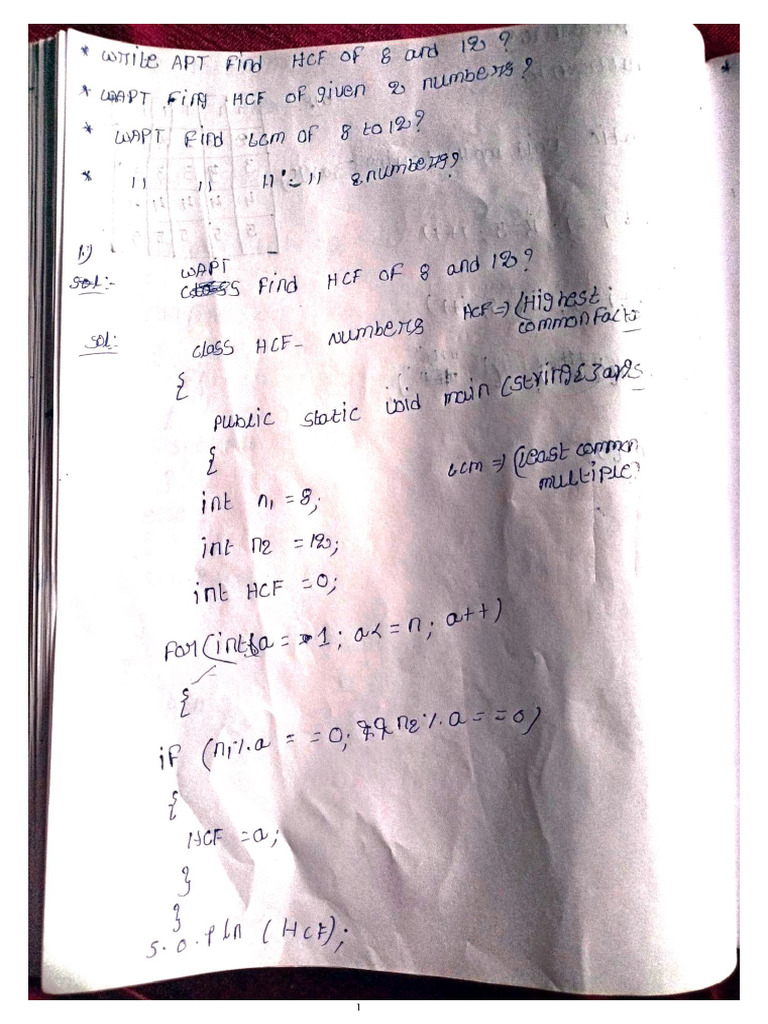 * Write APT Find HCF of 8 and 12?
* WAPT Find HCF of given 2 numbers?
* WAPT Find LCM of 8 to 12?
* ,, ,, ,, 2 numbers?
1.)
WAPT
Sol:- Find HCF of 8 and 12?
Sol: class HCF- numbers HCF => (Highest
common Fact
{
public static void main (String[] args
{
LCM => (least common
multiple
int n1 = 8;
int n2 = 12;
int HCF = 0;
for(int a = 1; a<=n; a++)
{
if (n1%a = = 0; && n2%a = = 0)
{
HCF = a;
}
}
S.O.Pln (HCF);
1